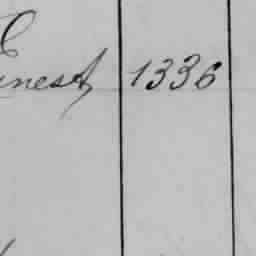 Ernest 1336